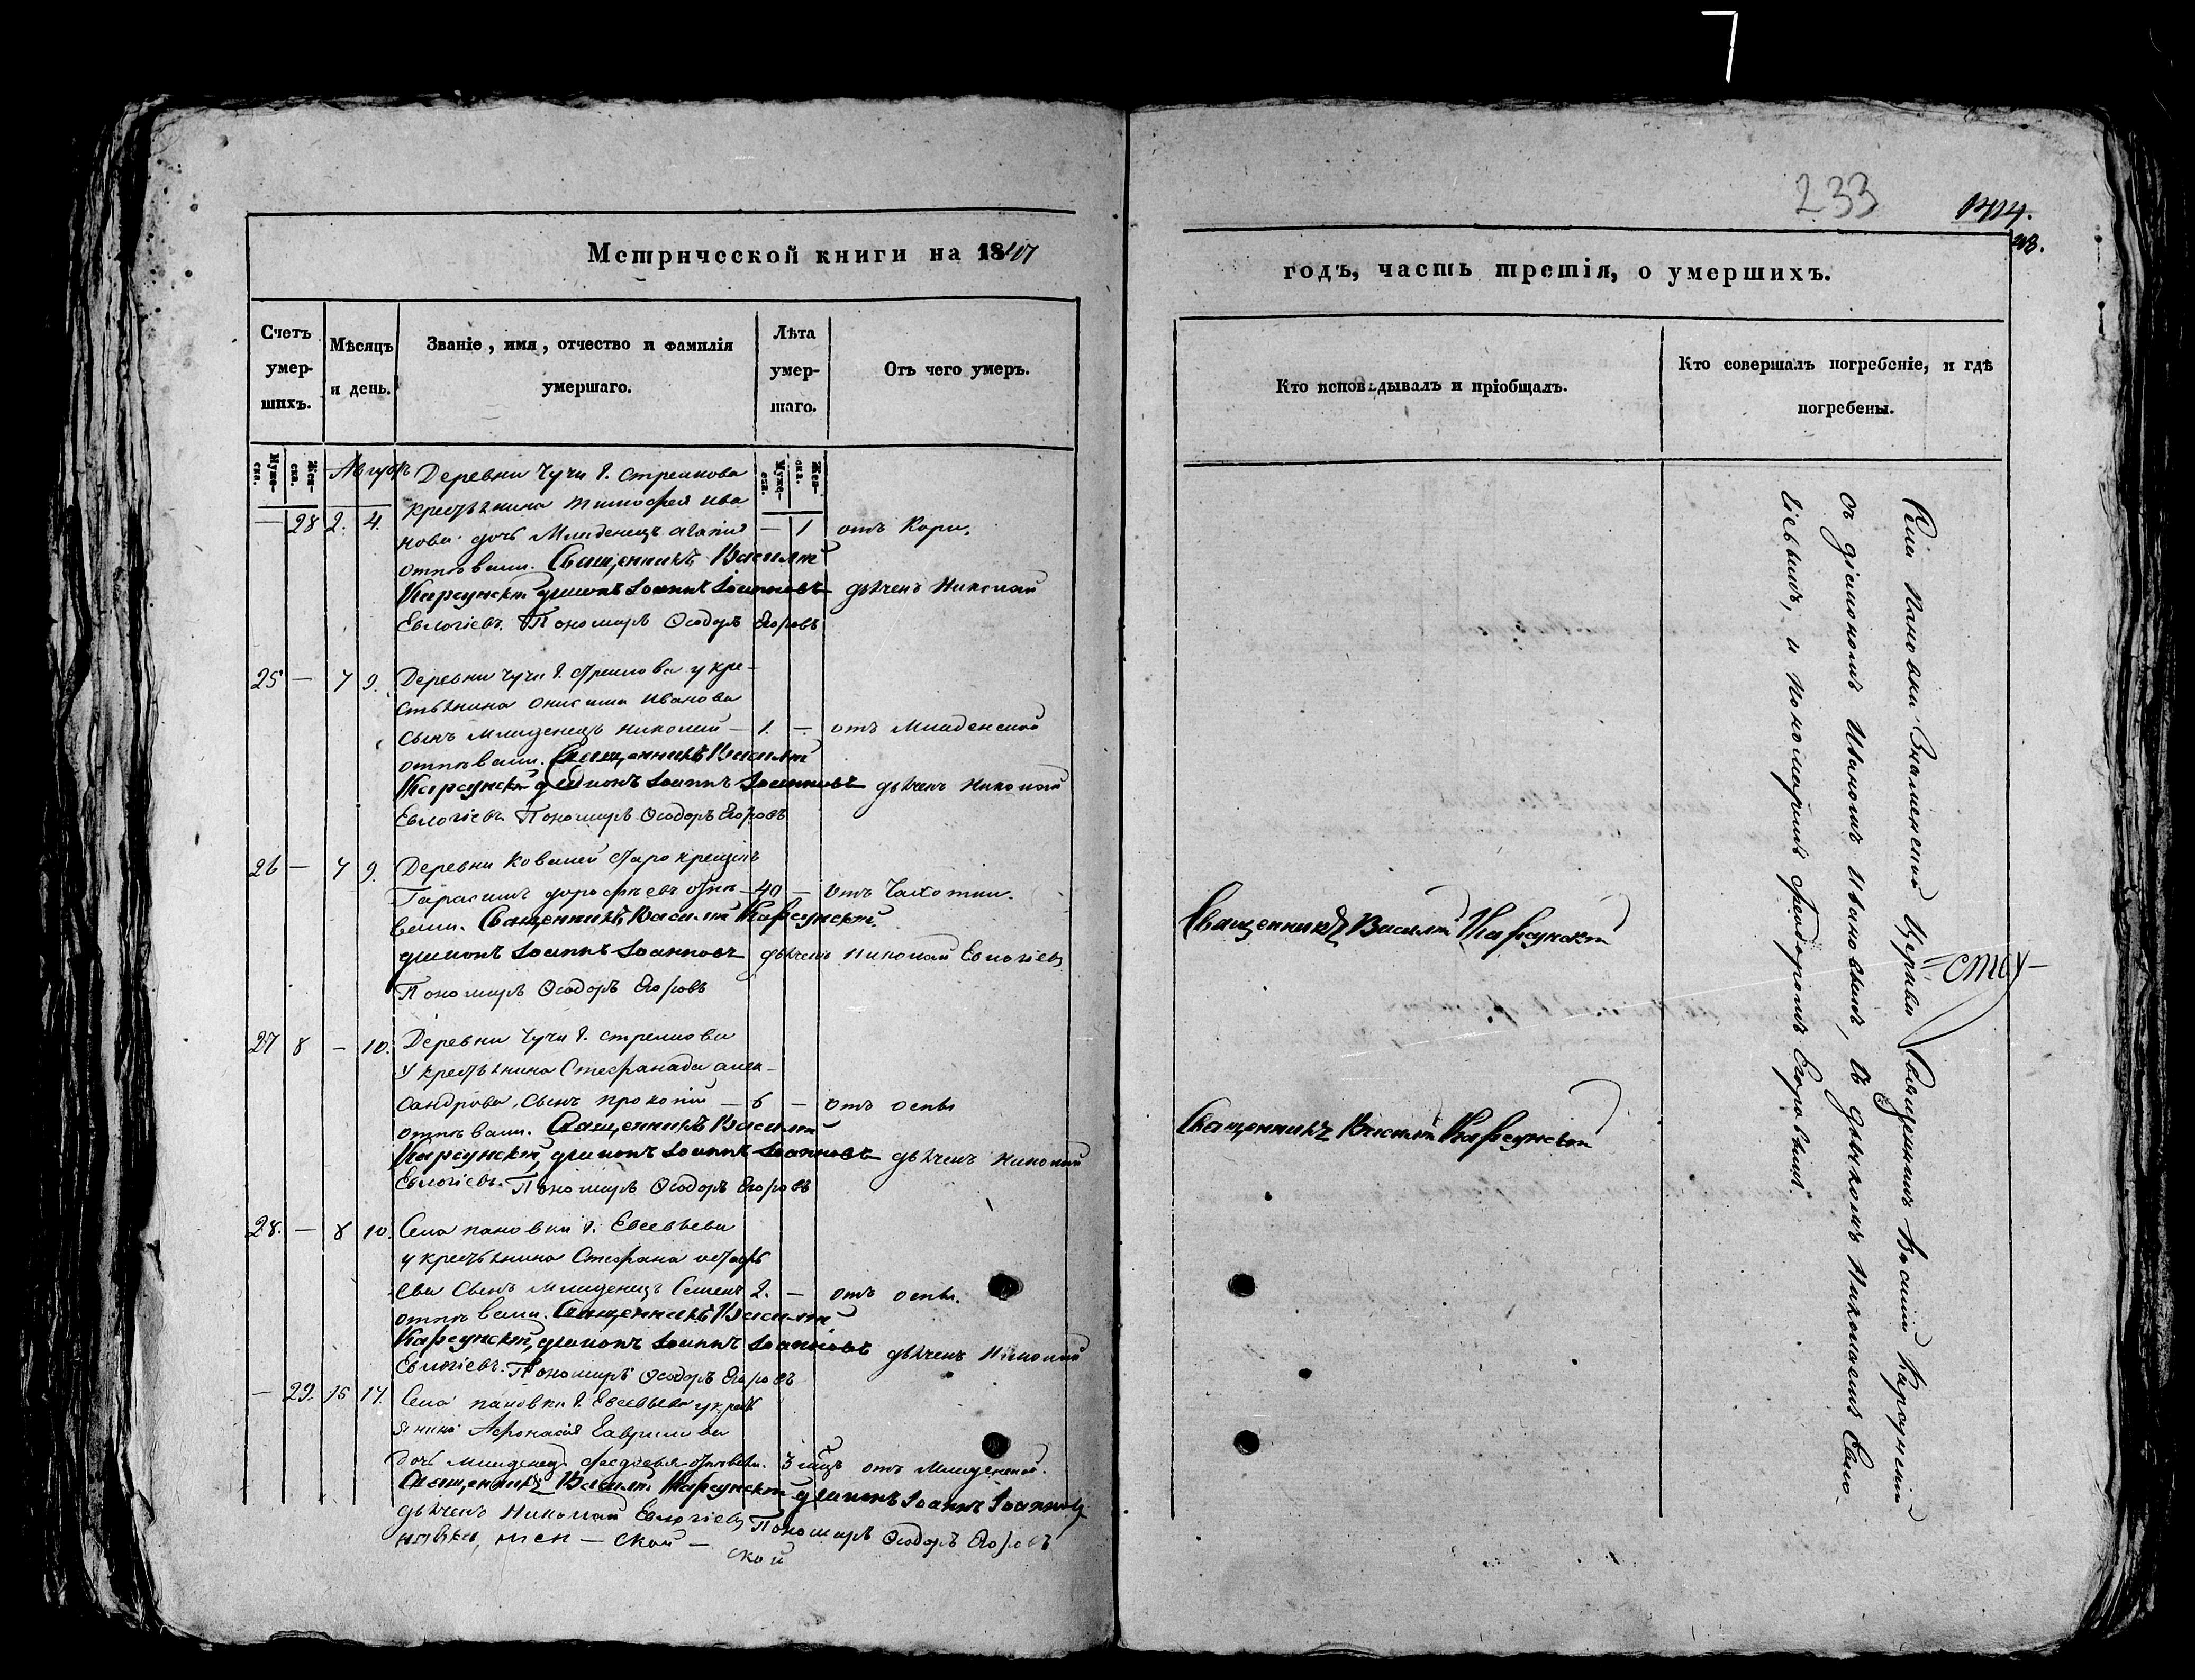 7
233
1414.
Метрической книги на 1847
годъ, часть третія, о умершихъ.
Счетъ умер-шихъ.
Мѣсяцъ и день.
Званіе, имя, отчество и фамилія умершаго.
Лѣта умер-шаго.
Отъ чего умеръ.
Кто исповѣдывалъ и пріобщалъ.
Кто совершалъ погребеніе, и гдѣ погребены.
Муже-ска.
Жен-ска.
Муже-ска.
Жен-ска.
Деревни Чучи г. Стрелкова
крестьянина Тимофея Ива
— 28 2. 4. нова дочь Младенецъ Агапія — 1 отъ Кори.
отпѣвали. Священникъ Василій
Карсунскій дьяконъ Іоаннъ Іоанновъ дьячекъ Николай
Евлогіевъ. Пономарь Ѳеодоръ Егоровъ
25 — 7 9. Деревни Чучи г. Стрелкова у кре-
стьянина Онисима Иванова
сынъ младенецъ Николай — 1. — отъ Младенской
отпѣвали. Священникъ Василій
Карсунскій дьяконъ Іоаннъ Іоанновъ дьячекъ Николай
Евлогіевъ Пономарь Ѳеодоръ Егоровъ
26 — 7 9. Деревни Ковалей старокрещенъ
Тарасимъ Дорофѣевъ отпѣ- 40 — отъ Чахотки.
вали. Священникъ Василій Карсунскій.
дьяконъ Іоаннъ Іоанновъ дьячекъ Николай Евлогіевъ
Пономарь Ѳеодоръ Егоровъ
Священникъ Василій Карсунскій
27 8 — 10. Деревни Чучи г. Стрелкова
у крестьянина Стефанада алек-
сандрова, сынъ Прокопій — 6 — отъ оспы
отпѣвали. Священникъ Василій
Карсунскій, дьяконъ Іоаннъ Іоанновъ дьячекъ Николай
Евлогіевъ. Пономарь Ѳеодоръ Егоровъ
Священникъ Василій Карсунскій
28. — 8 10. Села Пановки г. Евсевьева
у крестьянина Стефана остафь
ева сынъ младенецъ Семенъ 2. — отъ оспы.
отпѣвали. Священникъ Василій
Карсунскій, дьяконъ Іоаннъ Іоанновъ дьячекъ Николай
Евлогіевъ. Пономарь Ѳеодоръ Егоровъ
— 29. 15 17. Села Пановки г. Евсевьева у крест
янина Афонасія Гаврилова
дочь младенецъ Федосья отпѣвали. 3 мѣц отъ Младенской.
Священникъ Василій Карсунскій дьяконъ Іоаннъ Іоанновъ
дьячекъ Николай Евлогіевъ Пономарь Ѳеодоръ Егоровъ
ской
Села Пановки Знаменской Церкви Священникъ Василій Карсунскій
съ діакономъ Иваномъ Ивановымъ, съ дьячкомъ Николаемъ Евло-
гіевымъ, и Пономаремъ Феодоромъ Егоровымъ.